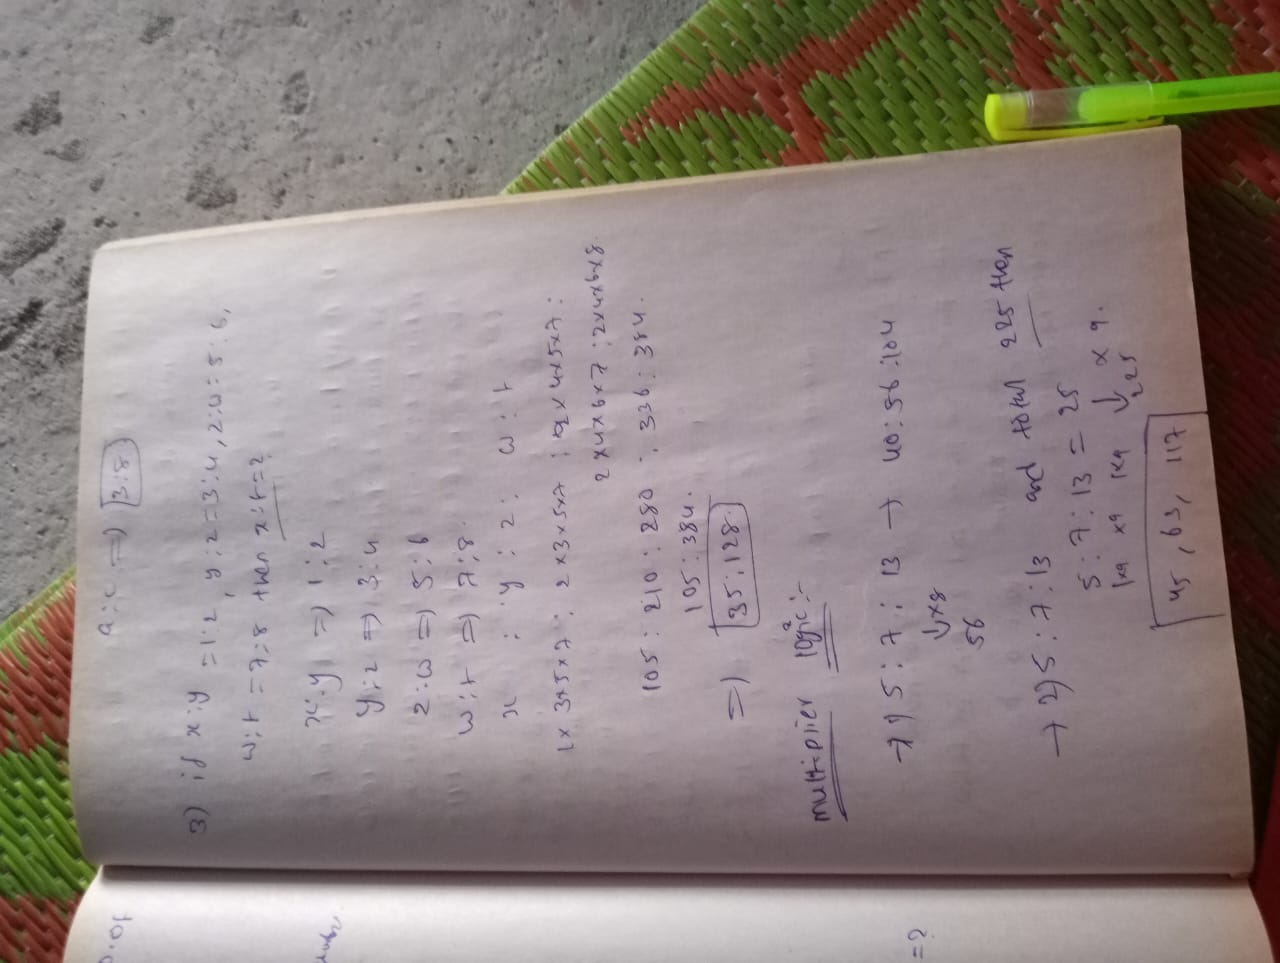 a:c => 3:8
3) if x:y = 1:2, y:z = 3:4, z:w = 5:6,
w:t = 7:8 then x:t = ?
x:y => 1:2
y:z => 3:4
z:w => 5:6
w:t => 7:8.
x : y : z : w : t
1x3x5x7 : 2x3x5x7 : 2x4x5x7 :
2x4x6x7 : 2x4x6x8.
105 : 210 : 280 : 336 : 384.
105 : 384.
=> 35:128.
multiplier logic :-
→ 1) 5 : 7 : 13 → 40:56:104
↓x8
56
→ 2) 5 : 7 : 13 and total 225 then
5 : 7 : 13 = 25
1x9 x9 1x9 ↓ x 9.
225
45, 63, 117
= ?